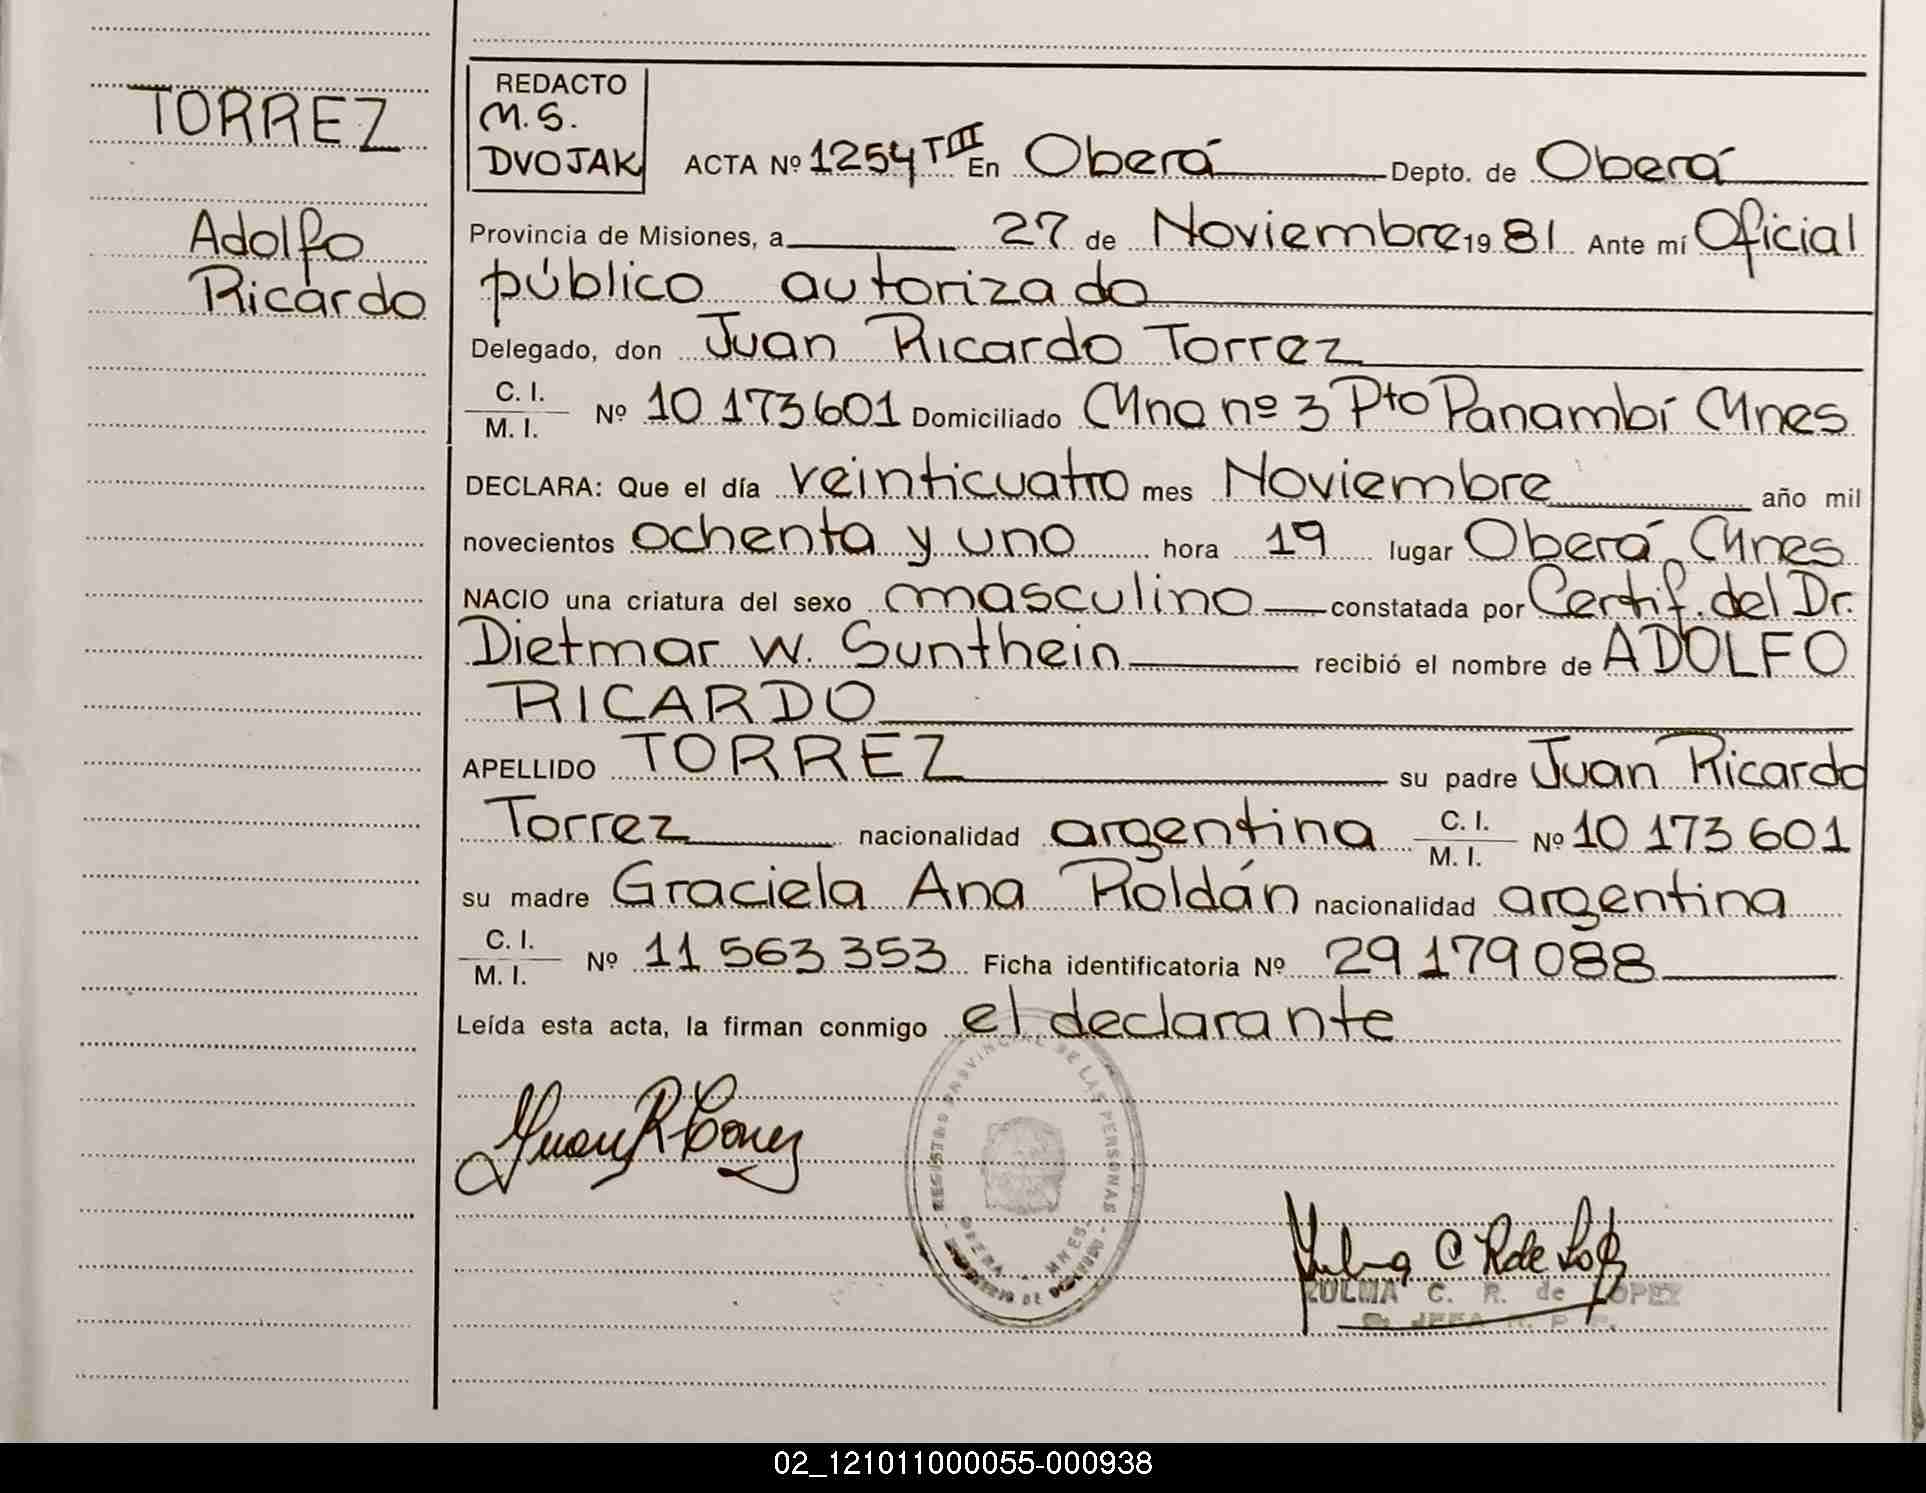 TORREZ
Adolfo
Ricardo
REDACTO
M.S.
DVOJAK
ACTA Nº 1254 TIII En Oberá Depto. de Oberá
Provincia de Misiones, a 27 de Noviembre 1981 Ante mí Oficial
público autorizado
Delegado, don Juan Ricardo Torrez
C. I.
M. I. Nº 10 173 601 Domiciliado Mna nº 3 Pto Panambí Mnes
DECLARA: Que el día veinticuatro mes Noviembre año mil
novecientos ochenta y uno hora 19 lugar Oberá Mnes
NACIO una criatura del sexo masculino constatada por Certif. del Dr.
Dietmar W. Sunthein recibió el nombre de ADOLFO
RICARDO
APELLIDO TORREZ su padre Juan Ricardo
Torrez nacionalidad argentina C. I. M. I. Nº 10 173 601
su madre Graciela Ana Roldán nacionalidad argentina
C. I.
M. I. Nº 11 563 353 Ficha identificatoria Nº 29 179 088
Leída esta acta, la firman conmigo el declarante
REGISTRO PROVINCIAL DE LAS PERSONAS
OBERA - MNES
Juan R Torrez
Zulma C R de López
ZULMA C. R. de LOPEZ
JEFA R. P. P.
02_121011000055-000938